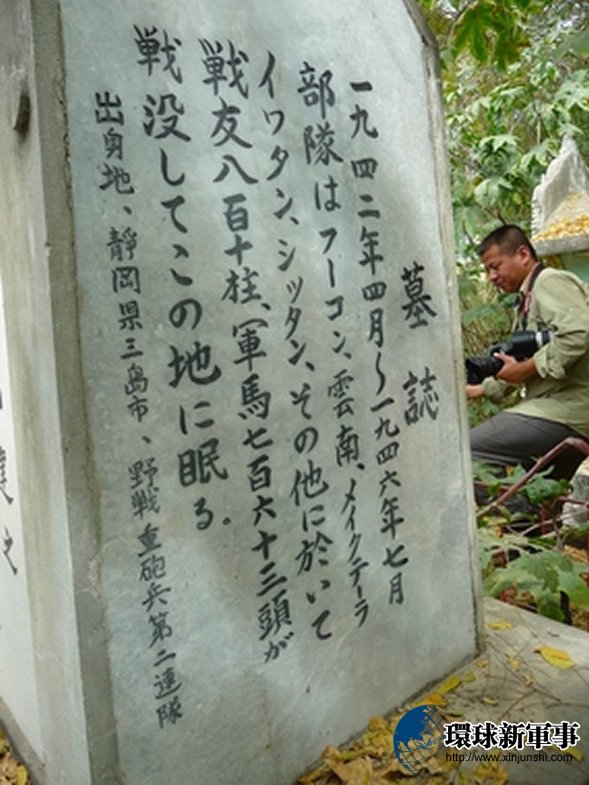 墓誌
一九四二年四月〜一九四六年七月
部隊はフーコン、雲南、メイクテーラ
イワタン、シッタン、その他に於いて
戦友八百十柱、軍馬七百六十三頭が
戦没してこの地に眠る。
出身地、静岡県三島市、野戦重砲兵第二連隊
建之
環球新軍事
http://www.xinjunshi.com